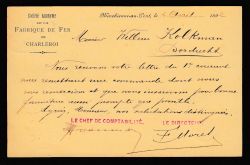 SOCIÉTÉ ANONYME
DE LA
FABRIQUE DE FER
DE
CHARLEROI
Monsieur Willem Kolkman
Dordrecht
Nous recevons votre lettre du 1er courant
nous remettant une commande dont nous
vous remercions et que nous inscrivons pour bonne
fourniture aussi prompte que possible.
Agréez, Monsieur, nos salutations distinguées.
LE CHEF DE COMPTABILITÉ, LE DIRECTEUR